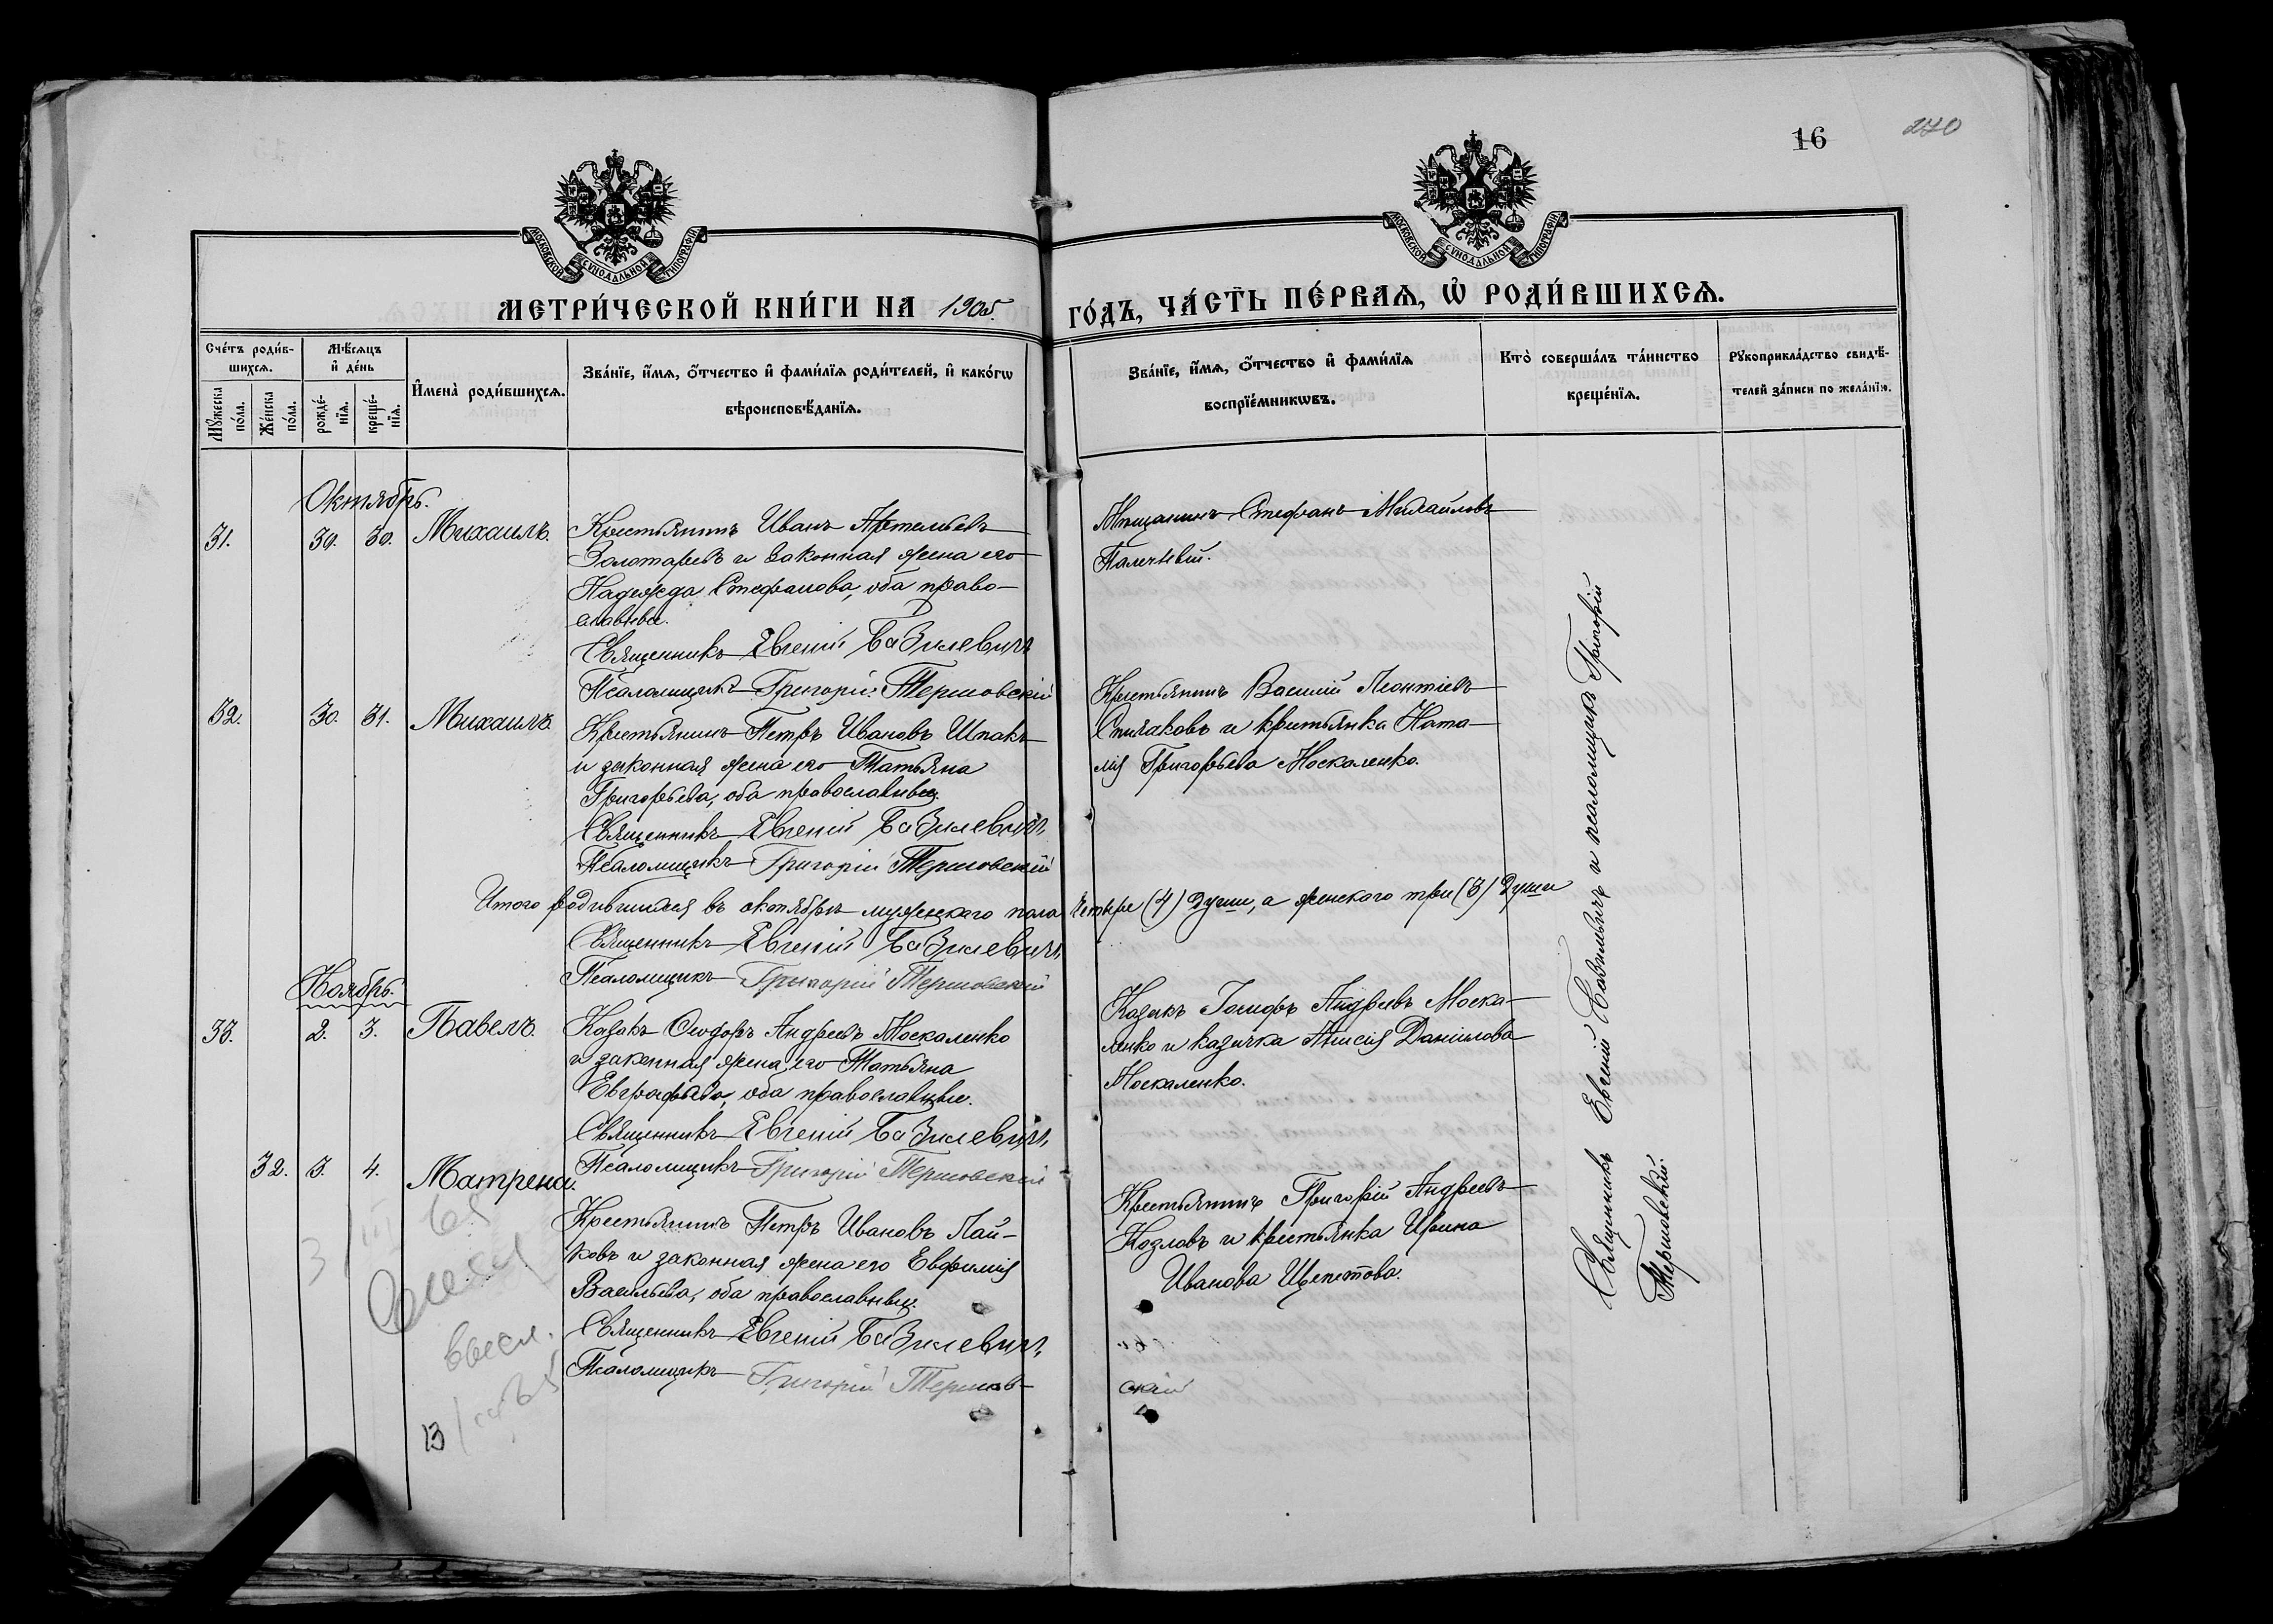 16
270
МОСКОВСКОЙ СУНОДАЛЬНОЙ ТИПОГРАФІИ
МОСКОВСКОЙ СУНОДАЛЬНОЙ ТИПОГРАФІИ
МЕТРИ́ЧЕСКОЙ КНИ́ГИ НА 1905.
ГО́ДЪ, ЧА́СТЬ ПЕ́РВАѦ, Ѡ҆ РОДИ́ВШИХСѦ.
Сче́тъ роди́в-
шихсѧ.
Мѣ́сѧцъ
и҆ де́нь
Мꙋжеска
по́ла.
Же́нска
по́ла.
рожде́-
нїѧ.
креще́-
нїѧ.
И҆мена̀ роди́вшихсѧ.
Зва́нїе, и҆́мѧ, ѻ҆́тчество и҆ фами́лїѧ роди́телей, и҆ како́гѡ
вѣроисповѣ́данїѧ.
Зва́нїе, и҆́мѧ, ѻ҆́тчество и҆ фами́лїѧ
воспрїе́мникѡвъ.
Кто̀ соверша́лъ та́инство
креще́нїѧ.
Рꙋкоприкла́дство свидѣ́-
телей за́писи по жела́нїю.
Октябрь.
31. 30. 30. Михаилъ.
Крестьянинъ Иванъ Артемьевъ
Золотаревъ и законная жена его
Надежда Стефанова, оба право-
славные.
Священникъ Евгеній Базилевичъ
Псаломщикъ Григорій Терновскій
Мѣщанинъ Стефанъ Михайловъ
32. 30. 31. Михаилъ.
Крестьянинъ Петръ Ивановъ Шпакъ
и законная жена его Татьяна
Григорьева, оба православные.
Священникъ Евгеній Базилевичъ
Псаломщикъ Григорій Терновскій
Крестьянинъ Василій Леонтіевъ
и крестьянка Ната-
лія Григорьева Москаленко.
Итого родившихся въ октябрѣ мужескаго пола четыре (4) души, а женскаго три (3) души
Священникъ Евгеній Базилевичъ
Псаломщикъ Григорій Терновскій
Ноябрь.
33. 2. 3. Павелъ.
Казакъ Ѳеодоръ Андреевъ Москаленко
и законная жена его Татьяна
Евграфова, оба православные.
Священникъ Евгеній Базилевичъ
Псаломщикъ Григорій Терновскій
Казакъ Іосифъ Андреевъ Моска-
ленко и казачка Анисія Даніилова
Москаленко.
32. 3. 4. Матрена.
Крестьянинъ Петръ Ивановъ Лай-
ковъ и законная жена его Евфимія
Васильева, оба православные.
Священникъ Евгеній Базилевичъ
Псаломщикъ Григорій Тернов-
скій
Крестьянинъ Григорій Андреевъ
Козловъ и крестьянка Ирина
Иванова
Священникъ Евгеній Базилевичъ и псаломщикъ Григорій
Терновскій.
13